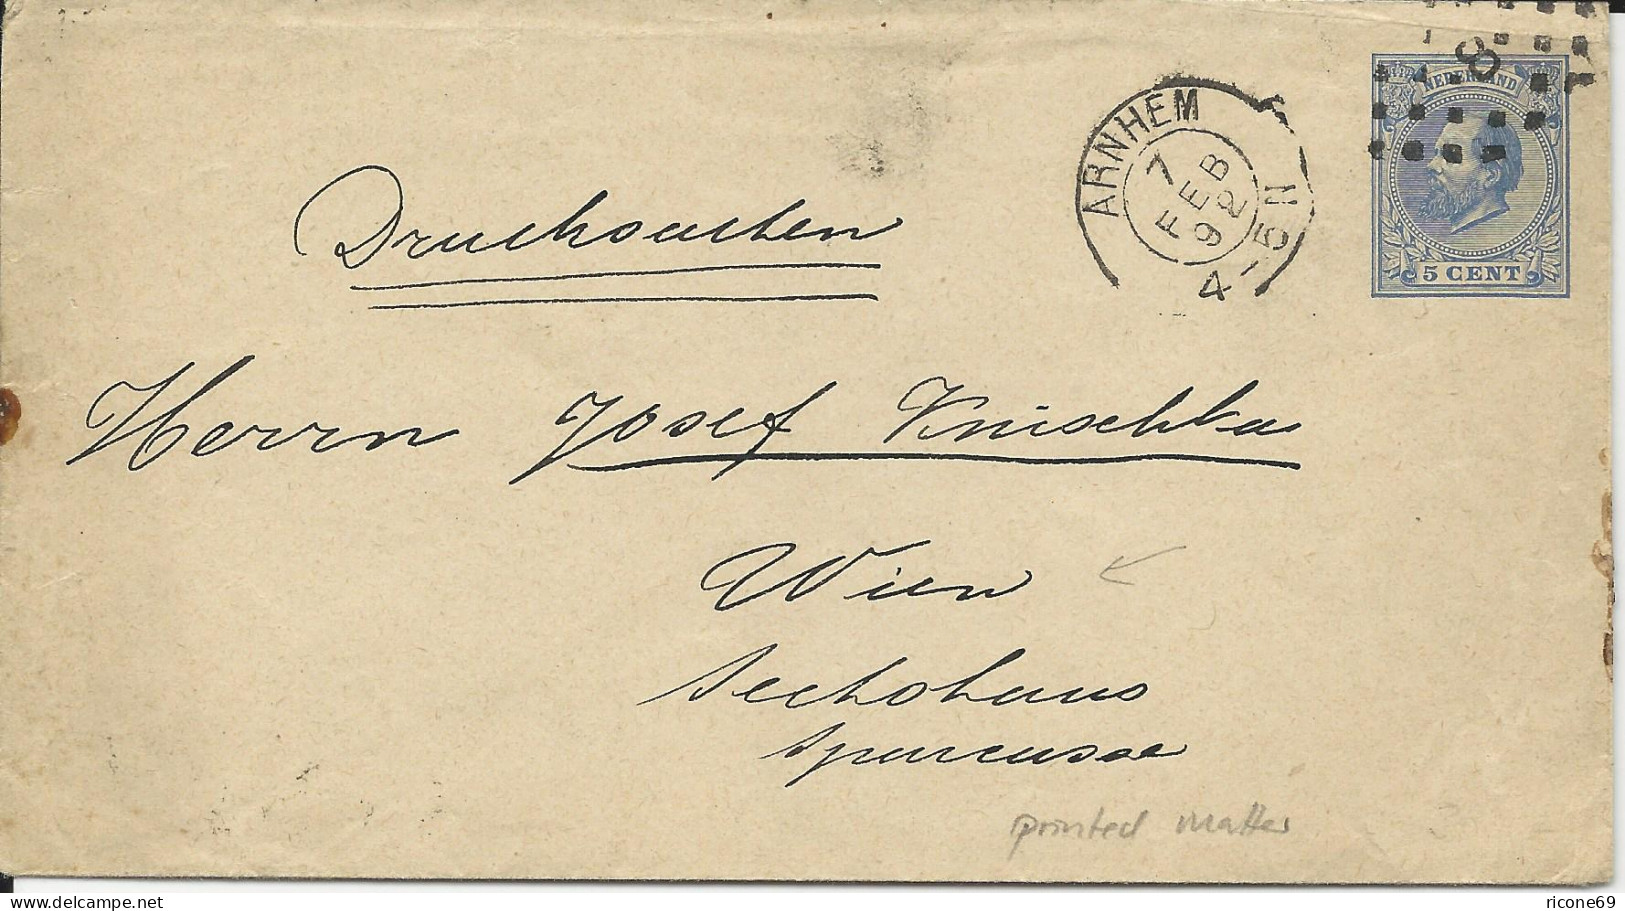 8
NEDERLAND
5 CENT
ARNHEM
7
FEB
92
4-5 N
Drucksachen
Herrn Josef Knischka
Wien
Sechshaus
Sparcasse
printed matter
ricone69